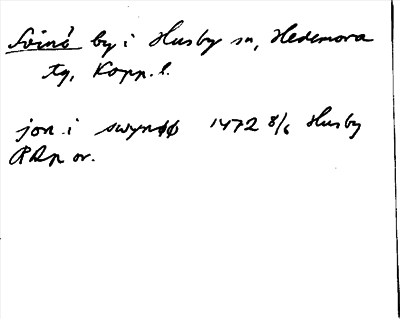 Svinö by i Husby sn, Hedemora
tg, Kopp. l.
jon i swynøø 1472 8/6 Husby
RApp or.